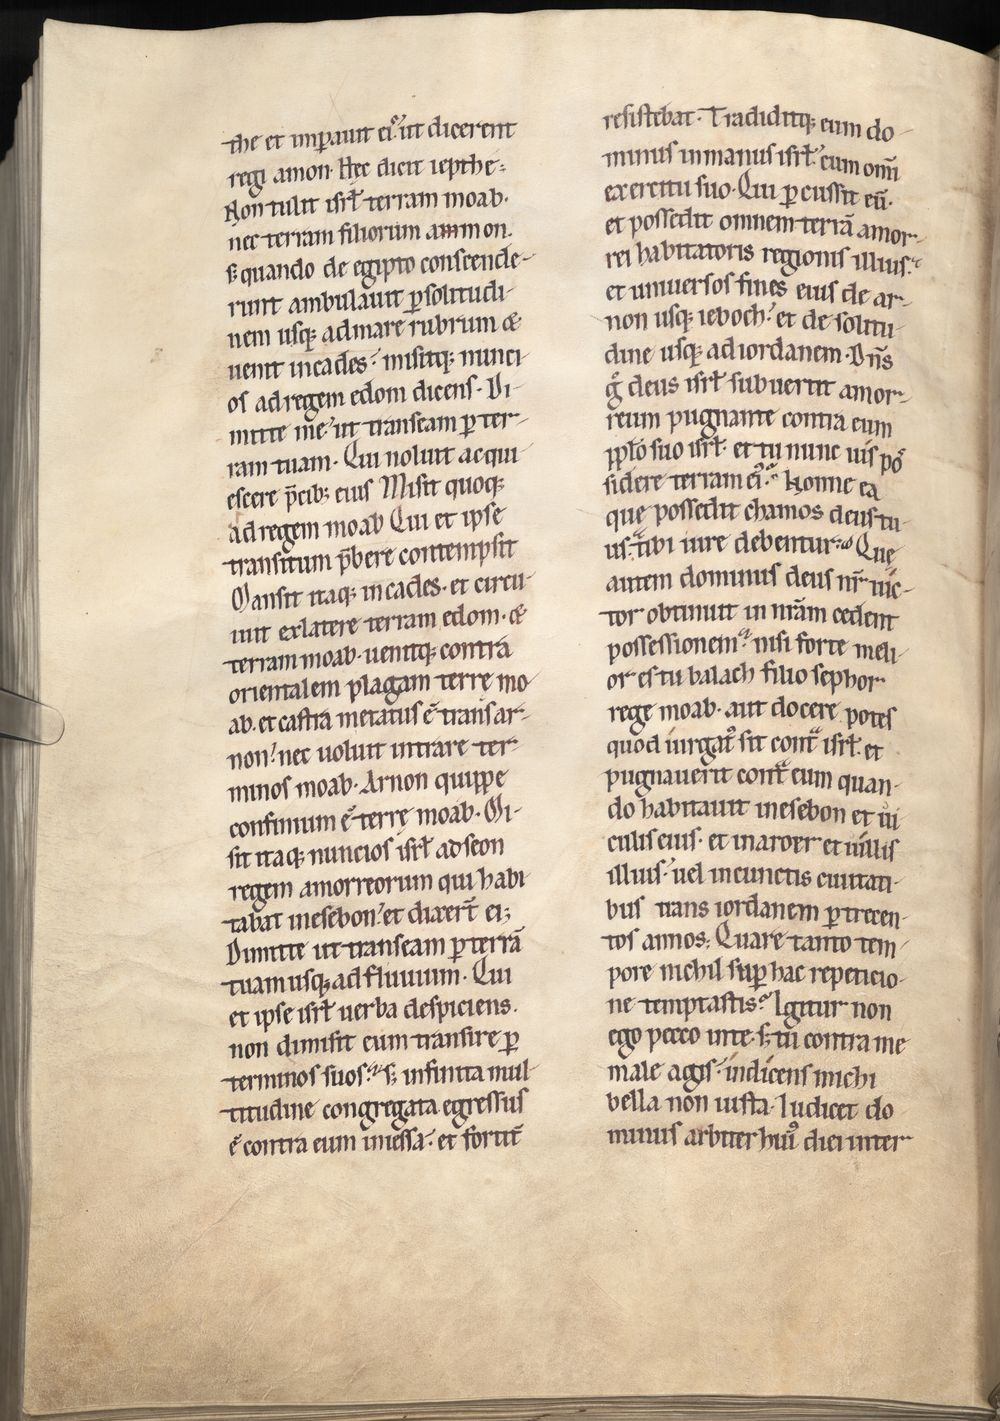 the et impauit ei᷒ ut dicerent
regi amon. Hec dicit iepthe:
Non tulit isrł terram moab.
nec terram filiorum ammon.
s; quando de egipto conscende-
runt ambulauit ꝑ solitudi-
nem usq; admare rubrum &
uenit incades. misitq; nunci-
os adregem edom dicens. Di-
mitte me ut transeam ꝑ ter-
ram tuam. Qui noluit acqui-
escere p̄cib; eius Misit quoq;
ad regem moab Qui et ipse
transitum p̄bere contempsit
Mansit itaq; incades. et circu-
iuit exlatere terram edom. &
terram moab. uenitq; contra
orientalem plagam terre mo-
ab. et castra metatus ē transar-
non. nec uoluit intrare ter-
minos moab. Arnon quippe
confinium ē terre moab. Mi-
sit itaq; nuncios isrł adseon
regem amorreorum qui habi-
tabat inesebon. et dixer̄t ei;
Dimitte ut transeam ꝑ terrā
tuam usq; ad fluuium. Qui
et ipse isrł uerba despiciens.
non dimisit eum transire ꝑ
terminos suos. s; infinita mul-
titudine congregata egressus
ē contra eum iniessa. et fortit̄
resistebat. Tradiditq; eum do-
minus inmanus isrł. cum omī
exercitu suo. Qui ꝑcussit eū.
et possedit omnem terrā amor-
rei habitatoris regionis illius.
et uniuersos fines eius de ar-
non usq; ieboch. et de solitu-
dine usq; ad iordanem. Dn̄s
g̊ deus isrł subuertit amor-
reum pugnante contra eum
pplo suo isrł. et tu nunc uis pos̄
sidere terram ei᷒. Nonne ea
que possedit chamos deus tu-
us. tibi iure debentur. Quę
autem dominus deus nr̄ uic-
tor obtinuit in nr̄am cedent
possessionem. nisi forte meli-
or es tu balach filio sephor
rege moab. aut docere potes
quod iurgat᷒ sit cont̄ isrł. et
pugnauerit cont̄ eum quan-
do habitauit inesebon et ui-
culis eius. et inaroer et uillis
illius. uel incunctis ciuitati-
bus trans iordanem ꝑ trecen-
tos annos. Quare tanto tem-
pore nichil suꝑ hac repeticio-
ne temptastis. Igitur non
ego pecco inte. s; tu contra me
male agis. indicens michi
bella non iusta. Iudicet do-
minus arbiter hui᷒ diei inter